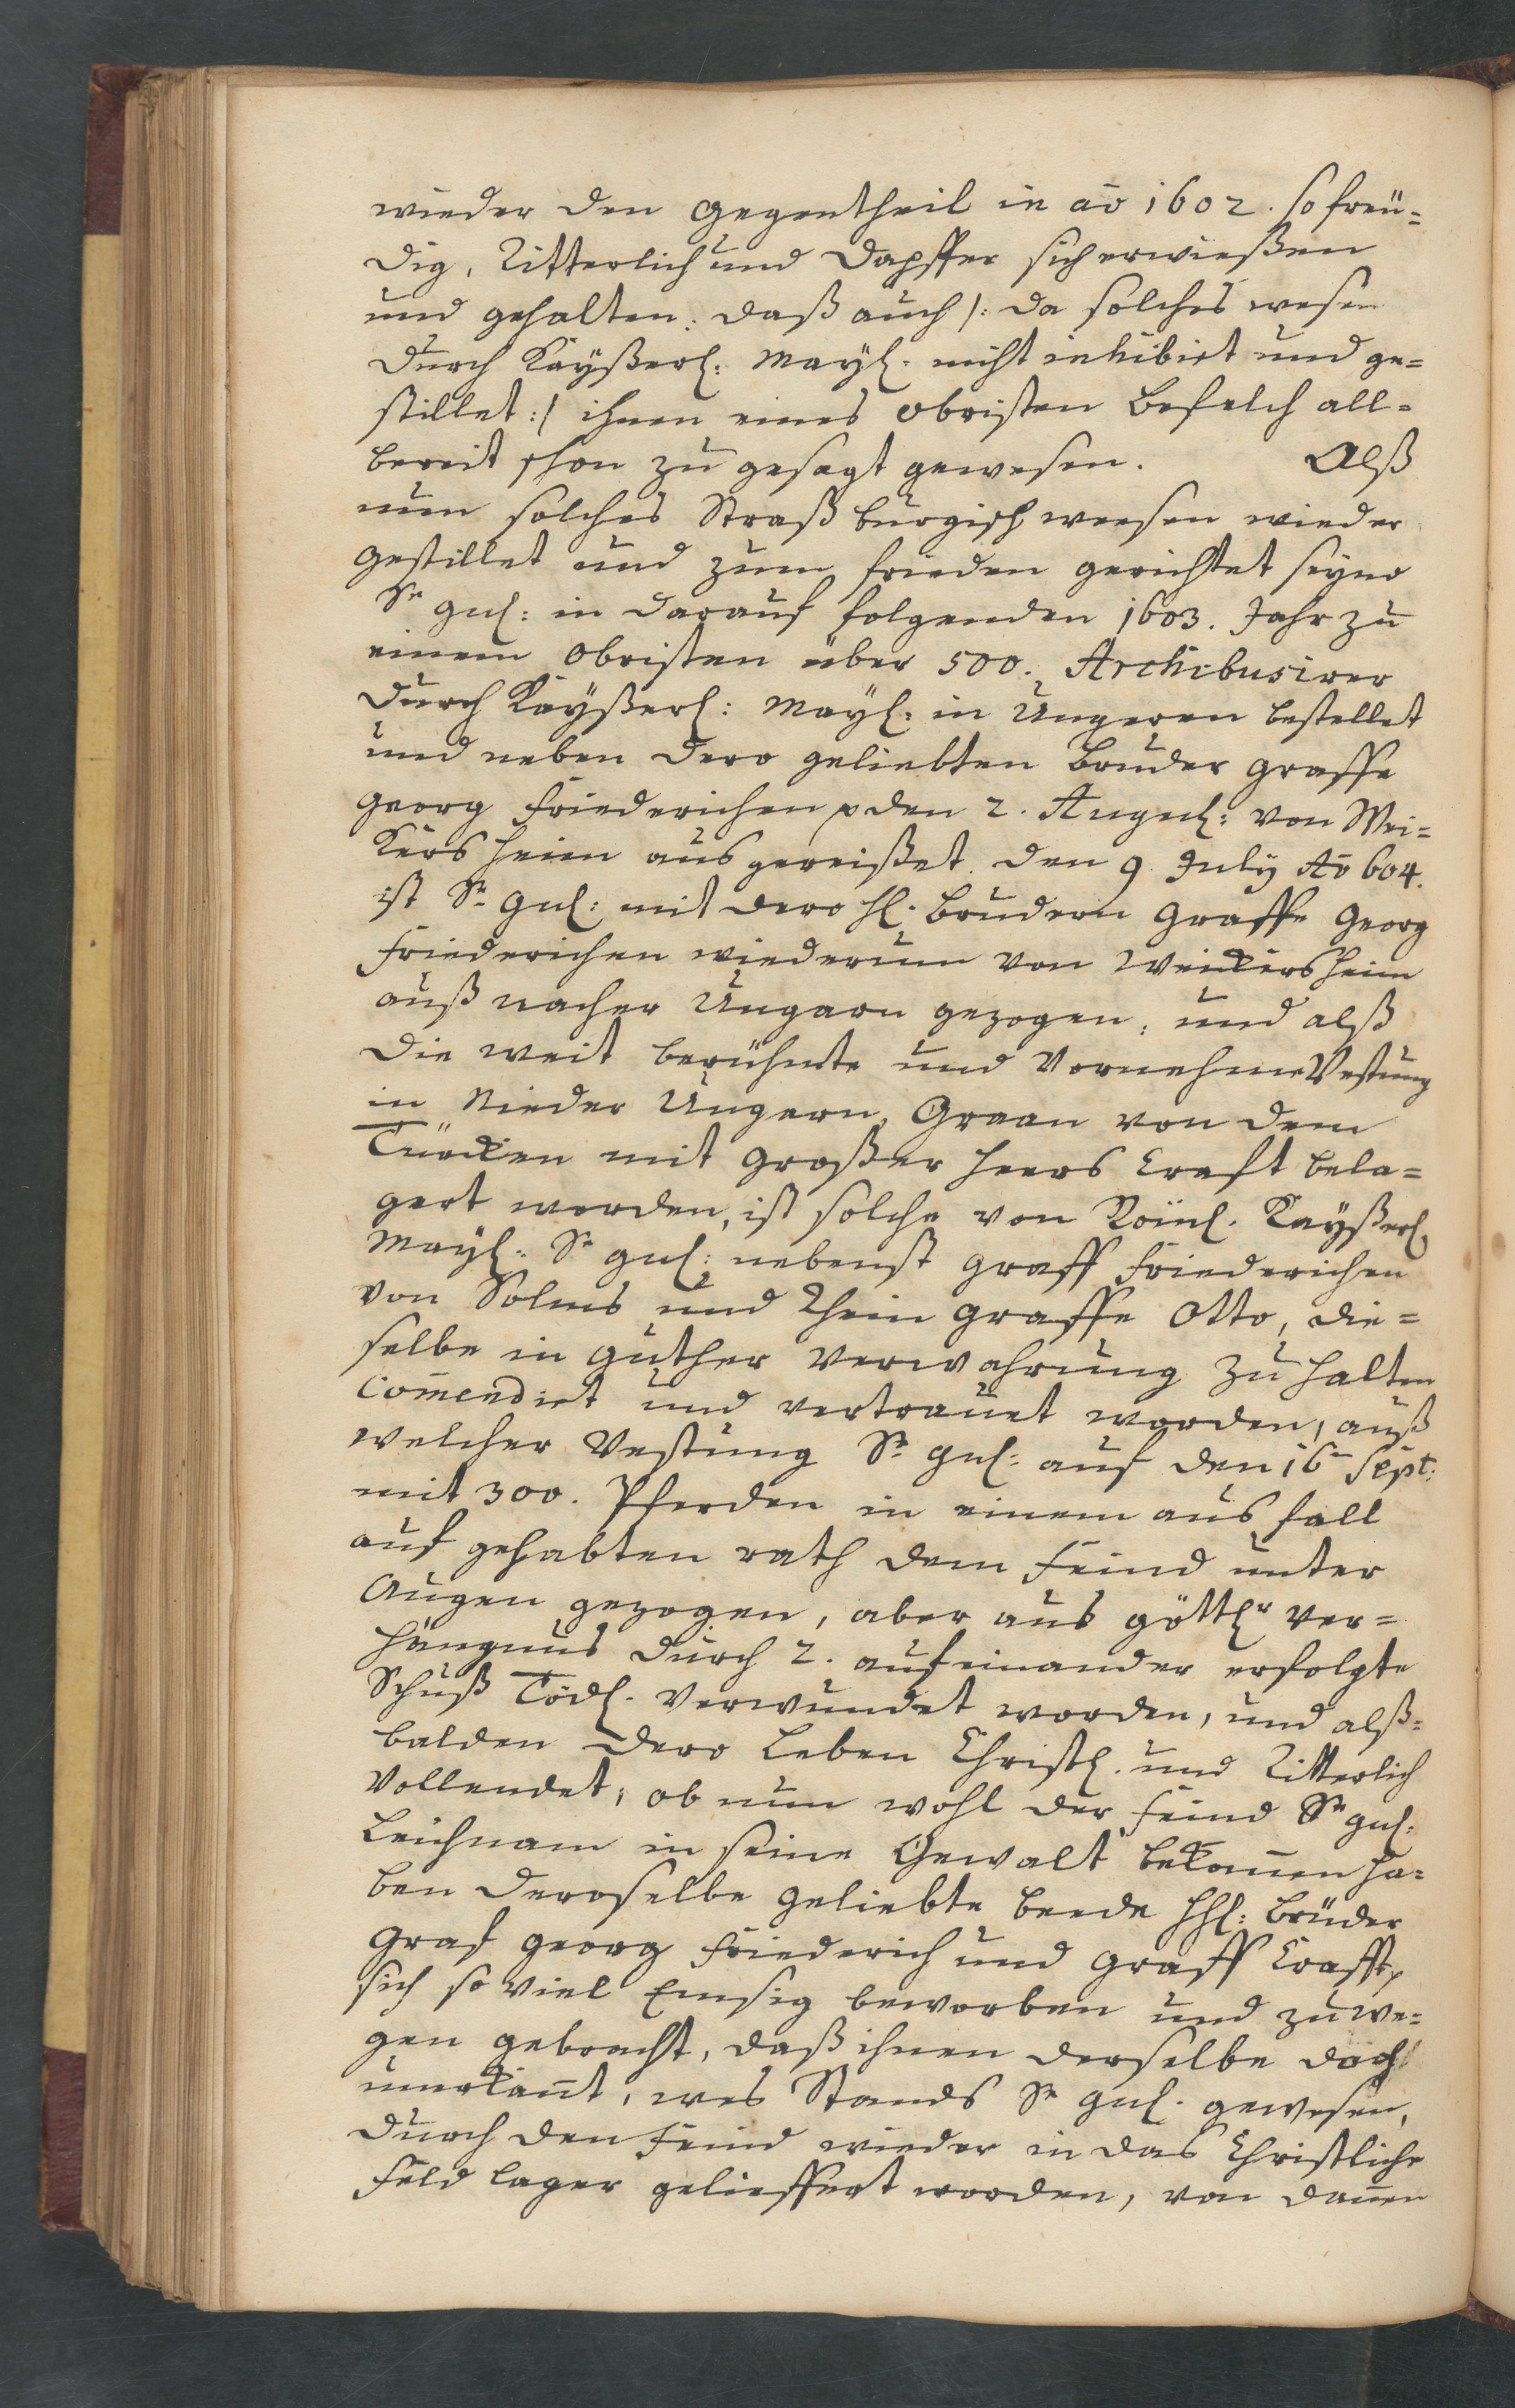 wieder den gegentheil in aō 1602. so freü=
dig, Ritterlich und Dapffer sich erwießen
und gehalten. daß auch /: da solches wesen
durch Kaÿßerl: Maÿl. nicht inhibirt und ge=
stillet :/ ihnen eines obristen Befelch all=
bereit schon zu gesagt gewesen. Alß
nun solches Straßburgisch weesen wieder
gestillet und zum frieden gerichtet seynd
Sr gnl: in darauf folgenden 1603. Jahr zu
einem Obristen über 500. Archibusirer
durch Kaÿßerl: Maÿl: in Ungeren bestellet
und neben dero geliebten Bruder Graffe
Georg Friederichen p den 2. Augul: von Wei=
kers heim ausgereißet. den 9 July Aō 604.
ist Sr Gnl: mit dero Hl. Brudern Graffe Georg
Friederichen wiederum von Weickersheim
auß nacher Ungarn gezogen, und alß
die weit berühmte und Vornehme Vestung
in Nieder Ungern, Graan von dem
Türcken mit großer Heers Crafft bela=
gert worden, ist solche von Röml. Kaÿßerl.
Maÿl. Sr gnl: nebenst Graff Friederichen
von Solms und Rhein graffe Otto, die=
selbe in guther Verwahrung zu halten
Com̄endirt und vertrauet worden, auß
welcher Vestung Sr gnl: auf den 16n Sept:
mit 300. Pferden in einem ausfall
auf gehabten rath dem Feind unter
Augen gezogen, aber aus göttlr Ver=
hängnus durch 2. aufeinander erfolgte
Schuß Tödl. verwundet worden, und alß=
balden dero Leben Christl. und Ritterlich
Vollendet, ob nun wohl der feind Sr gnl:
Leichnam in seine Gewalt bekom̄en ha=
ben deroselbe geliebte beede HHl: Brüder
Graf Georg Friederich und Graff Crafft p
sich so viel Emsig beworben und zuwe=
gen gebracht, daß ihnen derselbe doch
unerkan̄t, wes Stands Sr gnl. gewesen,
durch den Feind wieder in das Christliche
Feld lager geliefffert worden, von dan̄en